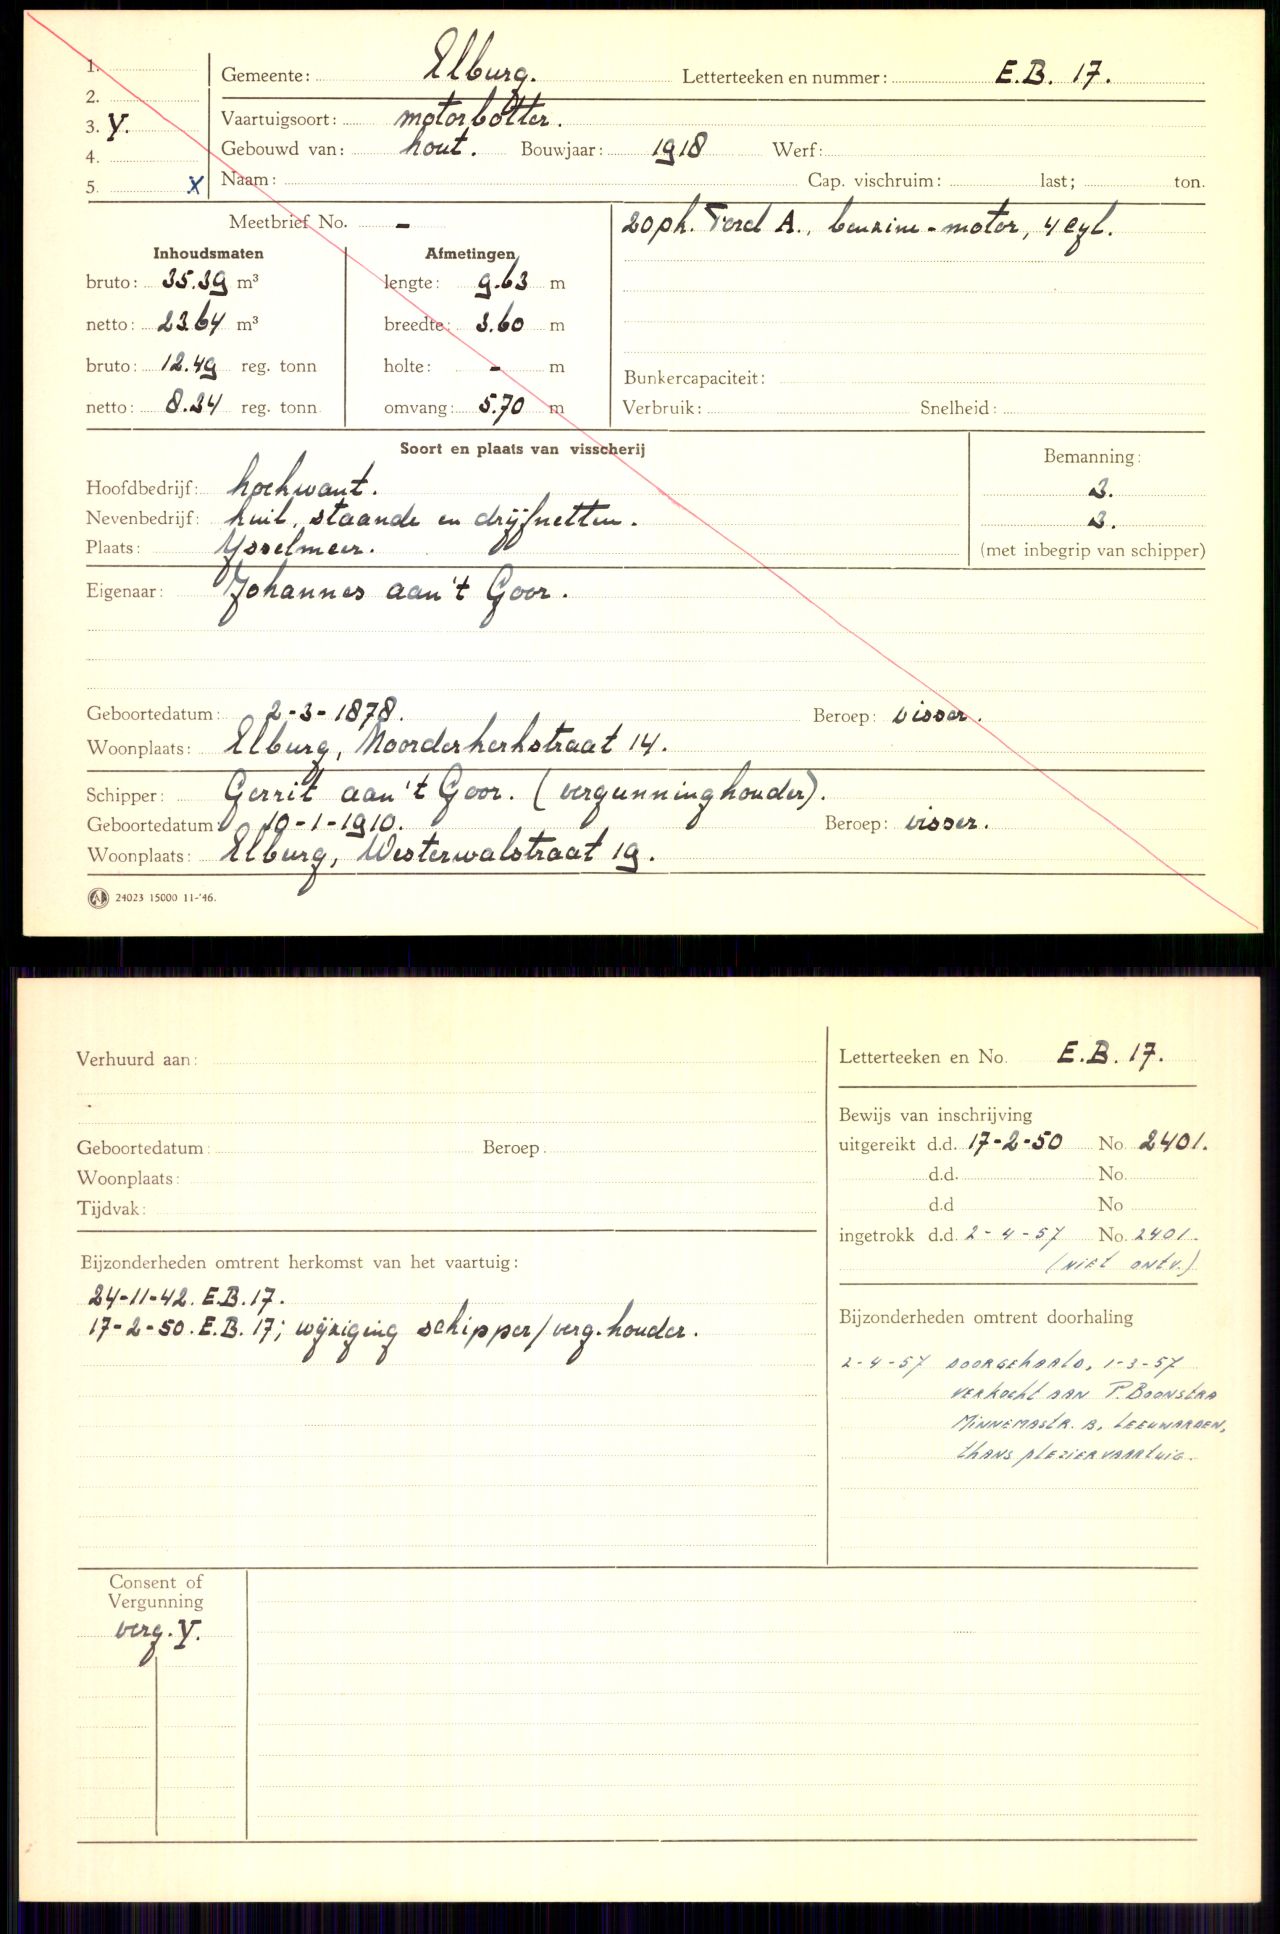 1.
Gemeente: Elburg. Letterteeken en nummer: E.B. 17.
2.
3. Y. Vaartuigsoort: motorbotter.
4. Gebouwd van: hout. Bouwjaar: 1918 Werf:
5. X Naam: Cap. vischruim: last; ton.
Meetbrief No. -
20 pk. Ford A., benzine-motor, 4 cyl.
Inhoudsmaten Afmetingen
bruto: 35.39 m³ lengte: 9.63 m
netto: 23.64 m³ breedte: 3.60 m
bruto: 12.49 reg. tonn holte: - m
Bunkercapaciteit:
netto: 8.34 reg. tonn omvang: 5.70 m Verbruik: Snelheid:
Soort en plaats van visscherij
Bemanning:
Hoofdbedrijf: hoekwant. 3.
Nevenbedrijf: kuil, staande en drijfnetten. 3.
Plaats: Ysselmeer. (met inbegrip van schipper)
Eigenaar: Johannes aan 't Goor.
Geboortedatum: 2-3-1878. Beroep: visser.
Woonplaats: Elburg, Noorderkerkstraat 14.
Schipper: Gerrit aan 't Goor. (vergunninghouder).
Geboortedatum: 10-1-1910. Beroep: visser.
Woonplaats: Elburg, Westerwalstraat 19.
24023 15000 11-'46.
Verhuurd aan: Letterteeken en No. E.B. 17.
Bewijs van inschrijving
Geboortedatum: Beroep. uitgereikt d.d. 17-2-50 No 2401.
Woonplaats: d.d. No.
Tijdvak: d.d No
ingetrokk d.d. 2-4-57 No. 2401.
(niet ontv.)
Bijzonderheden omtrent herkomst van het vaartuig:
24-11-42. E.B. 17.
17-2-50. E.B. 17; wijziging schipper/verg.houder.
Bijzonderheden omtrent doorhaling
2-4-57 doorgehaald, 1-3-57
verkocht aan P. Boonstra
Minnemastr. 13, Leeuwarden,
thans pleziervaartuig.
Consent of
Vergunning
verg. Y.